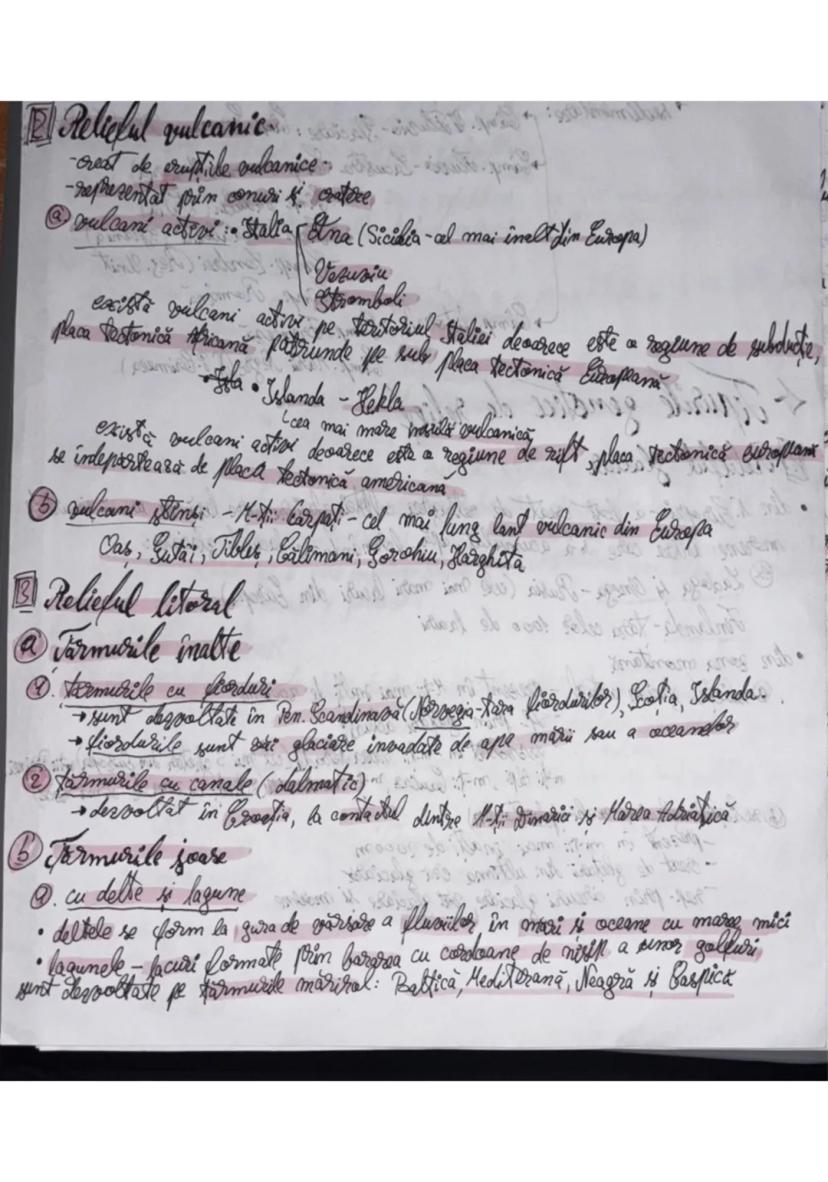 2 Relieful vulcanic
-creat de erupțiile vulcanice
-reprezentat prin conuri și cratere
a vulcani activi: • Italia Etna (Sicilia-cel mai înalt din Europa)
Vezuviu
Stromboli
există vulcani activi pe teritoriul Italiei deoarece este o regiune de subducție,
placa tectonică Africană pătrunde pe sub placa tectonică Europeană
• Islanda - Hekla
cea mai mare insulă vulcanică
există vulcani activi deoarece este o regiune de rift, placa tectonică europeană
se îndepărtează de placa tectonică americană
b vulcani stinși - M-ții Carpați - cel mai lung lanț vulcanic din Europa
Oaș, Gutâi, Țibleș, Călimani, Gurghiu, Harghita
3 Relieful litoral
a Țărmurile înalte
1. țărmurile cu fiorduri
→ sunt dezvoltate în Pen. Scandinavă (Norvegia-țara fiordurilor), Scoția, Islanda.
→ fiordurile sunt văi glaciare invadate de apa mării sau a oceanelor
2 țărmurile cu canale (dalmatic)
→ dezvoltat în Croația, la contactul dintre M-ții Dinarici și Marea Adriatică
b Țărmurile joase
1. cu delte și lagune
• deltele se form la gura de vărsare a fluviilor, în mari și oceane cu maree mici
• lagunele - lacuri formate prin bararea cu cordoane de nisip a unor golfuri
sunt dezvoltate pe țărmurile mărilor: Baltică, Mediterană, Neagră și Caspică